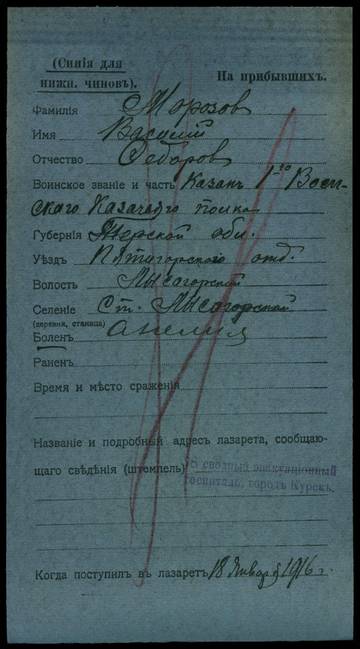 (Синія для
нижн. чиновъ).
На прибывшихъ.
Фамилія Морозов
Имя Василій
Отчество Федоров
Воинское званіе и часть Казакъ 1го
скаго Казачьяго полка
Губернія Терской обл.
Уѣздъ Пятигорскаго отд.
Волость Лысогорской
Селеніе Ст. Лысогорской
(деревня, станица)
Боленъ анемия
Раненъ
Время и мѣсто сраженія
Названіе и подробный адресъ лазарета, сообщаю-
щаго свѣдѣнія (штемпель) сводный эвакуаціонный
госпиталь, городъ Курскъ.
Когда поступилъ въ лазаретъ 18 Января 1916 г.